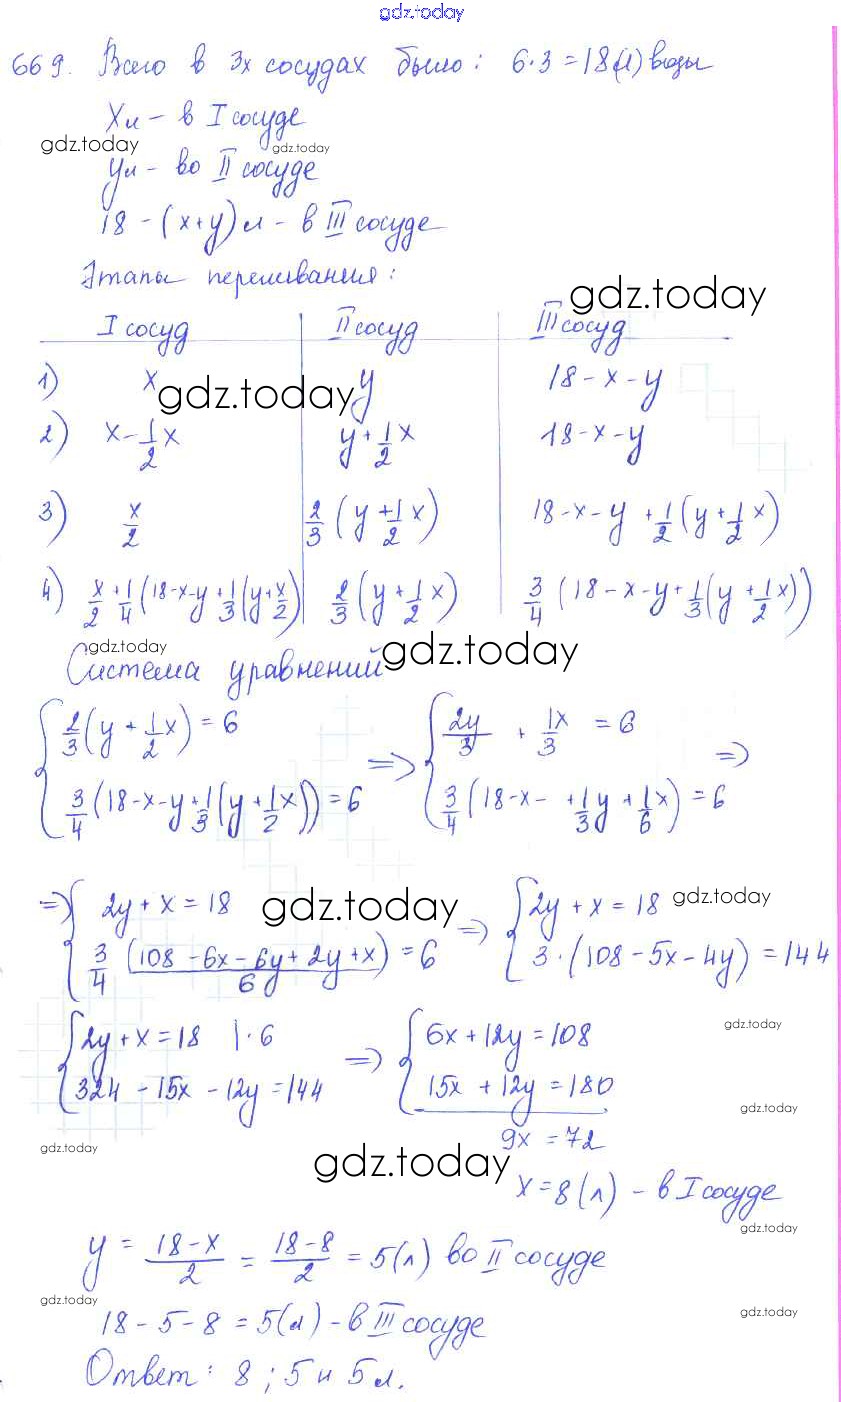 gdz.today
669. Всего в 3х сосудах было: 6·3=18(л) воды
Xл – в I сосуде
gdz.today gdz.today
yл – во II сосуде
18 – (x+y) л – в III сосуде
Этапы переливания:
gdz.today
I сосуд II сосуд III сосуд
1) x y 18-x-y
gdz.today
2) x - 1/2 x y + 1/2 x 18-x-y
3) x/2 2/3 (y + 1/2 x) 18-x-y + 1/2 (y + 1/2 x)
4) x/2 + 1/4 (18-x-y + 1/3 (y + x/2) 2/3 (y + 1/2 x) 3/4 (18-x-y + 1/3 (y + 1/2 x))
gdz.today
Система уравнений gdz.today
{ 2/3 (y + 1/2 x) = 6 => { 2y/3 + 1x/3 = 6 =>
{ 3/4 (18-x-y + 1/3 (y + 1/2 x)) = 6 { 3/4 (18-x- + 1/3 y + 1/6 x) = 6
=> { 2y + x = 18 gdz.today => { 2y + x = 18 gdz.today
{ 3/4 (108 - 6x - 6y + 2y + x)/6 = 6 { 3·(108 - 5x - 4y) = 144
gdz.today
{ 2y + x = 18 |·6 => { 6x + 12y = 108
{ 324 - 15x - 12y = 144 { 15x + 12y = 180
gdz.today
9x = 72
gdz.today gdz.today
x = 8 (л) – в I сосуде
gdz.today
y = (18-x)/2 = (18-8)/2 = 5(л) во II сосуде
gdz.today gdz.today
18 - 5 - 8 = 5(л) – в III сосуде
Ответ: 8 ; 5 и 5 л.